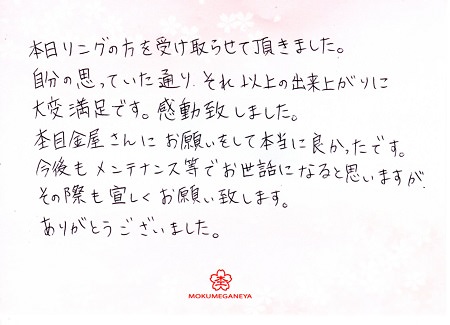 本日リングの方を受け取らせて頂きました。
自分の思っていた通り、それ以上の出来上がりに
大変満足です。感動致しました。
杢目金屋さんにお願いをして本当に良かったです。
今後もメンテナンス等でお世話になると思いますが、
その際も宜しくお願い致します。
ありがとうございました。
杢
MOKUMEGANEYA